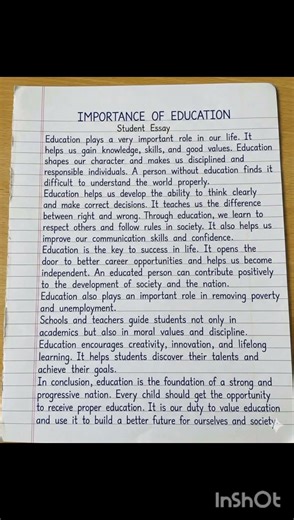 IMPORTANCE OF EDUCATION
Student Essay
Education plays a very important role in our life. It
helps us gain knowledge, skills, and good values. Education
shapes our character and makes us disciplined and
responsible individuals. A person without education finds it
difficult to understand the world properly.
Education helps us develop the ability to think clearly
and make correct decisions. It teaches us the difference
between right and wrong. Through education, we learn to
respect others and follow rules in society. It also helps us
improve our communication skills and confidence.
Education is the key to success in life. It opens the
door to better career opportunities and helps us become
independent. An educated person can contribute positively
to the development of society and the nation.
Education also plays an important role in removing poverty
and unemployment.
Schools and teachers guide students not only in
academics but also in moral values and discipline.
Education encourages creativity, innovation, and lifelong
learning. It helps students discover their talents and
achieve their goals.
In conclusion, education is the foundation of a strong and
progressive nation. Every child should get the opportunity
to receive proper education. It is our duty to value education
and use it to build a better future for ourselves and society
InShOt